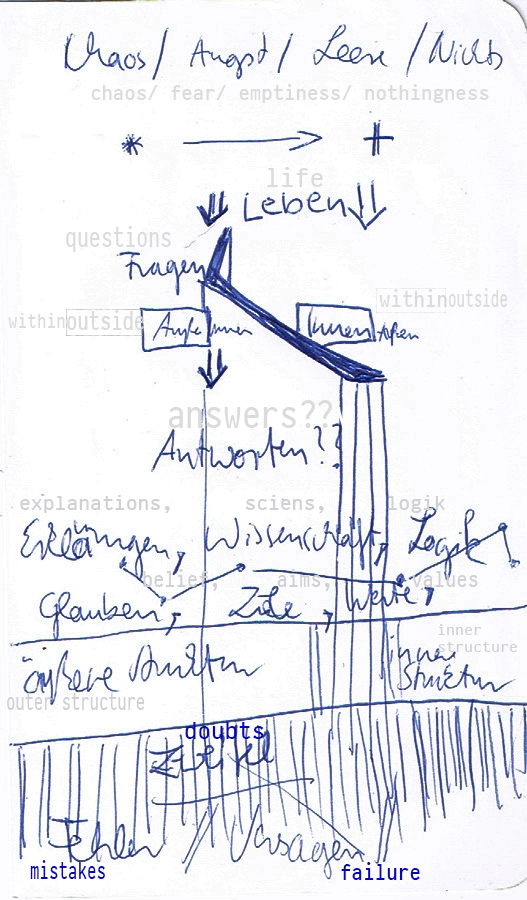 Chaos/ Angst/ Leere /Nichts
chaos/ fear/ emptiness/ nothingness
* → +
life
Leben
questions
Fragen
withinoutside
withinoutside
Außen Innen
Innen Außen
answers??
Antworten??
explanations, sciens, logik
Erklärungen, Wissenschaft, Logik
belief, aims, values
Glauben, Ziele, Werte,
inner structure
äußere Struktur
innere Struktur
outer structure
doubts
Zweifel
Fehler // Versagen
mistakes
failure